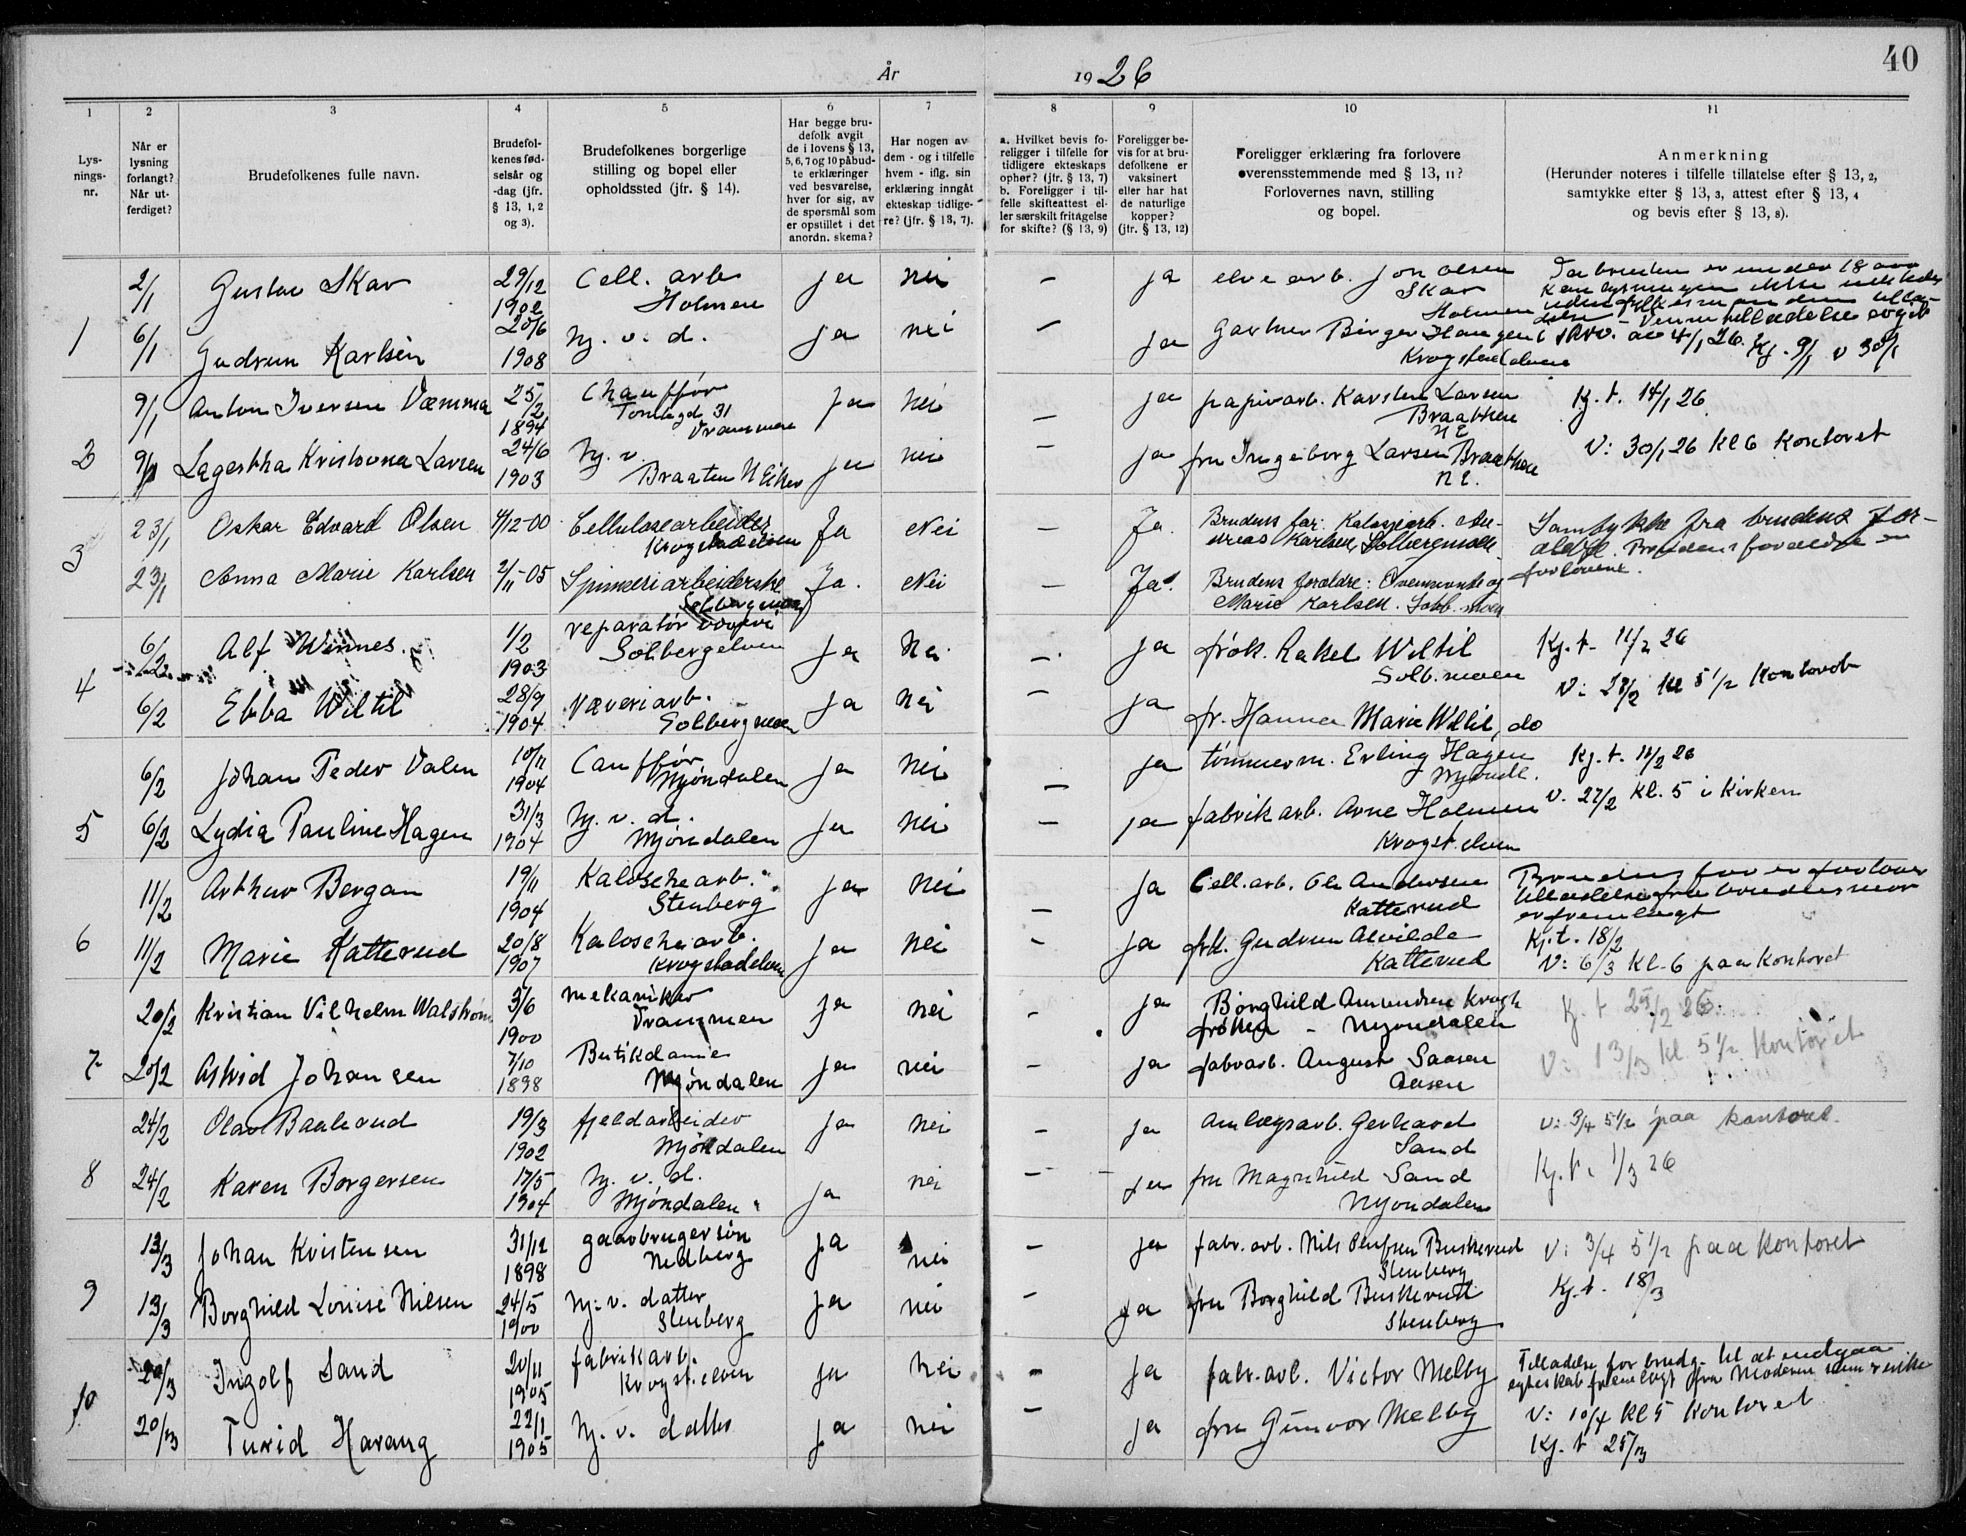 År 1926
40
1 2 3 4 5 6 7 8 9 10 11
Lysningsnr.
Når er lysning forlangt? Når utferdiget?
Brudefolkenes fulle navn.
Brudefolkenes fødselsår og -dag (jfr. § 13, 1, 2 og 3).
Brudefolkenes borgerlige stilling og bopel eller opholdssted (jfr. § 14).
Har begge brudefolk avgit de i lovens § 13, 5, 6, 7 og 10 påbudte erklæringer ved besvarelse, hver for sig, av de spørsmål som er opstillet i det anordn. skema?
Har nogen av dem - og i tilfelle hvem - iflg. sin erklæring inngåt ekteskap tidligere? (jfr. § 13, 7).
a. Hvilket bevis foreligger i tilfelle for tidligere ekteskaps ophør? (jfr. § 13, 7) b. Foreligger i tilfelle skifteattest eller særskilt fritagelse for skifte? (§ 13, 9)
Foreligger bevis for at brudefolkene er vaksinert eller har hat de naturlige kopper? (jfr. § 13, 12)
Foreligger erklæring fra forlovere overensstemmende med § 13, 11? Forlovernes navn, stilling og bopel.
Anmerkning (Herunder noteres i tilfelle tillatelse efter § 13, 2, samtykke efter § 13, 3, attest efter § 13, 4 og bevis efter § 13, 8).
1
2/1 Gustav Skar 29/12 1902 Cell. arb Holmen ja nei — ja elvearb. Jon Olsen Skar Holmen
6/1 Gudrun Karlsen 20/6 1908 hj. v. d. ja nei — ja Gartner Birger Haugen Krogstadelven
Da bruden er under 18 aar kan lysningen ikke
av 4/1 26. Kj. 9/1 v 30/1
2
9/1 Anton Iversen Væmma 25/2 1894 Chauffør Drammen ja nei — ja papirarb. Karsten Larsen Braathen N E
Kj. t. 14/1 26
9/1 Lagertha Kristovna Larsen 24/6 1903 hj. v. Braaten N Eiker ja nei — ja fru Ingeborg Larsen Braathen N E.
V: 30/1 26 kl 6 Kontoret
3
23/1 Oskar Edvard Olsen 4/12-00 Cellulosearbeider Krogstadelven Ja Nei — Ja. Brudens far: Andreas Karlsen, Solbergmoen
Samtykke fra brudens forældre. Brudens forældre er forlovere.
23/1 Anna Marie Karlsen 2/11-05 Spinneriarbeiderske Solbergmoen Ja. Nei — Ja. Brudens forældre: Ovennevnte og Marie Karlsen. Solb. moen
4
6/2 Alf Winnes. 1/2 1903 reparatør Solbergelven ja nei — ja frøk. Rakel Wiltil Solb. moen
Kj. t. 11/2 26
6/2 Ebba Wiltil 28/9 1904 Væveriarb. Solbergmoen ja nei — ja fr. Hanna Marie Wiltil, do
V: 27/2 kl 5 1/2 Kontoret
5
6/2 Johan Peder Dalen 10/11 1904 Cauffør Mjøndalen ja nei — ja tømmerm. Erling Hagen Mjøndl.
Kj. t. 11/2 26
6/2 Lydia Pauline Hagen 31/3 1904 hj. v. d. Mjøndalen ja nei — ja fabrikarb. Arne Holmen Krogst. elven
V. 27/2 kl. 5 i Kirken
6
11/2 Arthur Bergan 19/11 1904 Kaloschearb. Stenberg ja nei — ja Cell. arb. Ole Andersen Katterud
Brudens far er forlover tilladelse fra brudens mor er fremlagt
11/2 Marie Katterud 20/8 1907 Kaloschearb. Krogstadelven ja nei — ja frk. Gudrun Alvilde Katterud
Kj. t. 18/2
V: 6/3 kl. 6 paa Kontoret
7
20/2 Kristian Vilhelm Walstrøm 3/6 1900 mekaniker Drammen ja nei — ja Borghild Amundsen Krogh frøken - Mjøndalen
Kj. t 25/2 26.
20/2 Astrid Johansen 7/10 1898 Butikdame Mjøndalen ja nei — ja fabrarb. August Saasen Aasen
V: 13/3 kl 5 1/2 Kontoret
8
24/2 Olav Baalerud 19/3 1902 fjeldarbeider Mjøndalen ja nei — ja Anlægsarb. Gerhard Sand
V: 3/4 5 1/2 paa kontoret.
24/2 Karen Borgersen 17/5 1904 hj. v. d. Mjøndalen ja nei — ja fru Magnhild Sand Mjøndalen
Kj. t. 1/3 26
9
13/3 Johan Kristensen 31/12 1898 gaarbrugersøn Nedberg ja nei — ja fabr. arb. Nils Buskerud Stenberg
V: 3/4 5 1/2 paa Kontoret
13/3 Borghild Louise Nilsen 24/5 1900 hj. v. datter Stenberg ja nei — ja fru Borghild Buskerud Stenberg
Kj. t. 18/3
10
20/3 Ingolf Sand 20/11 1905 fabrikarb. Krogst. elven ja nei — ja fabr. arb. Victor Melby
Tilladelse for brudg. til at indgaa egteskab fremlagt fra Moderen
20/3 Turid Harang 22/1 1905 hj. v. datter ja nei — ja fru Gunvor Melby
V: 10/4 kl 5 Kontoret
Kj. t 25/3